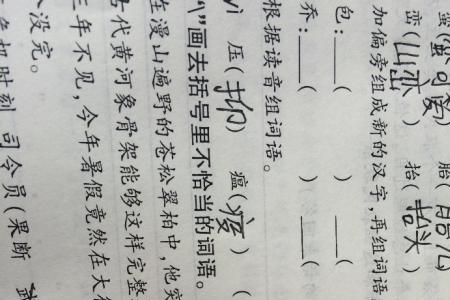 蛮(蛮可爱) 胎(胎儿
峦(山峦) 抬(抬头)
加偏旁组成新的汉字,再组词语
包:____( ) ____(
乔:____( ) ____(
根据读音组词语。
yì 压(抑) 瘟(疫) (
“\”画去括号里不恰当的词语。
在漫山遍野的苍松翠柏中,他突
代黄河象骨架能够这样完整
三年不见,今年暑假竟然在大
没完。
机时刻,司令员(果断 武